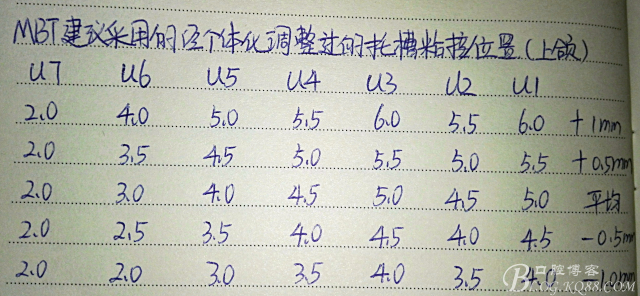 MBT建议采用的经个体化调整过的托槽粘接位置(上颌)
U7 U6 U5 U4 U3 U2 U1
2.0 4.0 5.0 5.5 6.0 5.5 6.0 +1mm
2.0 3.5 4.5 5.0 5.5 5.0 5.5 +0.5mm
2.0 3.0 4.0 4.5 5.0 4.5 5.0 平均
2.0 2.5 3.5 4.0 4.5 4.0 4.5 -0.5mm
2.0 2.0 3.0 3.5 4.0 3.5 4.0
口腔博客
BLOG.KQ88.COM